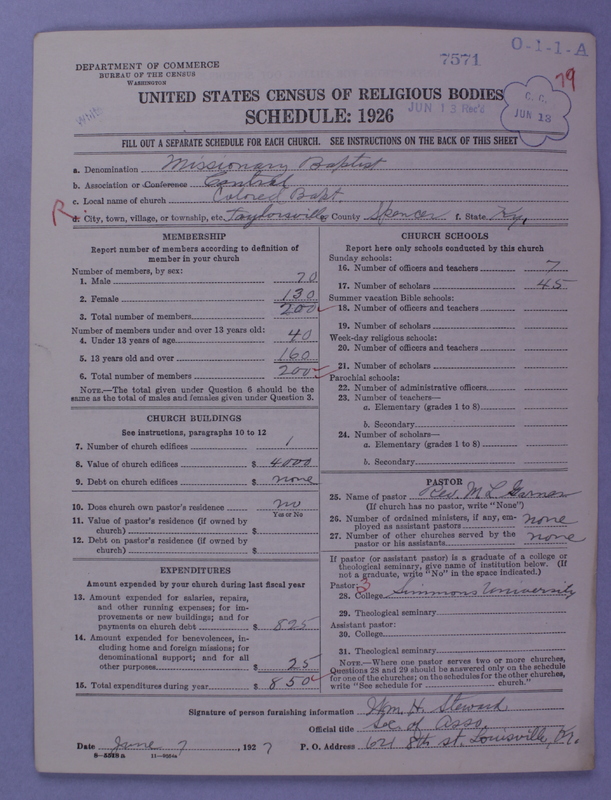 7571
O-1-1-A
79
DEPARTMENT OF COMMERCE
BUREAU OF THE CENSUS
WASHINGTON
White
UNITED STATES CENSUS OF RELIGIOUS BODIES
SCHEDULE: 1926
JUN 13 Rec'd
C. C.
JUN 13
FILL OUT A SEPARATE SCHEDULE FOR EACH CHURCH. SEE INSTRUCTIONS ON THE BACK OF THIS SHEET
a. Denomination Missionary Baptist
b. Association or Conference Central
c. Local name of church Colored Bapt.
R.
d. City, town, village, or township, etc. Taylorsville e. County Spencer f. State Ky.
MEMBERSHIP
Report number of members according to definition of
member in your church
Number of members, by sex:
1. Male 70
2. Female 130
3. Total number of members 200
Number of members under and over 13 years old:
4. Under 13 years of age 40
5. 13 years old and over 160
6. Total number of members 200
NOTE.—The total given under Question 6 should be the
same as the total of males and females given under Question 3.
CHURCH BUILDINGS
See instructions, paragraphs 10 to 12
7. Number of church edifices 1
8. Value of church edifices $ 4000
9. Debt on church edifices $ none
10. Does church own pastor's residence no
Yes or No
11. Value of pastor's residence (if owned by
church) $
12. Debt on pastor's residence (if owned by
church) $
EXPENDITURES
Amount expended by your church during last fiscal year
13. Amount expended for salaries, repairs,
and other running expenses; for im-
provements or new buildings; and for
payments on church debt $ 825
14. Amount expended for benevolences, in-
cluding home and foreign missions; for
denominational support; and for all
other purposes $ 25
15. Total expenditures during year $ 850
CHURCH SCHOOLS
Report here only schools conducted by this church
Sunday schools:
16. Number of officers and teachers 7
17. Number of scholars 45
Summer vacation Bible schools:
18. Number of officers and teachers
19. Number of scholars
Week-day religious schools:
20. Number of officers and teachers
21. Number of scholars
Parochial schools:
22. Number of administrative officers
23. Number of teachers—
a. Elementary (grades 1 to 8)
b. Secondary
24. Number of scholars—
a. Elementary (grades 1 to 8)
b. Secondary
PASTOR
25. Name of pastor Rev. M L
(If church has no pastor, write "None")
26. Number of ordained ministers, if any, em-
ployed as assistant pastors none
27. Number of other churches served by the
pastor or his assistants none
If pastor (or assistant pastor) is a graduate of a college or
theological seminary, give name of institution below. (If
not a graduate, write "No" in the space indicated.)
Pastor: 3
28. College Simmons University
29. Theological seminary
Assistant pastor:
30. College
31. Theological seminary
NOTE.—Where one pastor serves two or more churches,
Questions 28 and 29 should be answered only on the schedule
for one of the churches; on the schedules for the other churches,
write "See schedule for church."
Signature of person furnishing information Wm. H. Steward
Official title Sec. of Asso.
Date June 7, 1927 P. O. Address 621 8th st. Louisville, Ky.
8—5519a 11—9094a